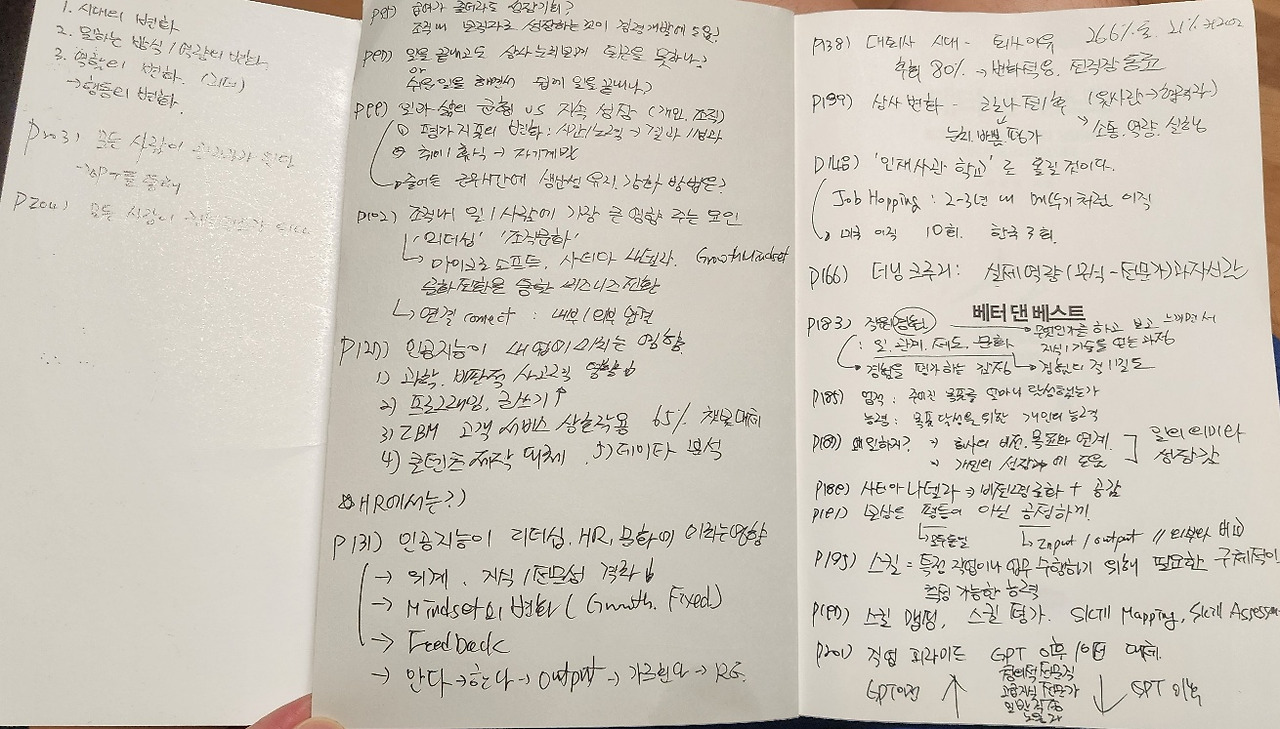 1. 시대의 변화
2. 일하는 방식/역량의 변화
3. 역할의 변화. (리더)
→행동의 변화
P203) 모든 사람이
→GPT를 통해
P204) 모든 사람이
급여가 줄더라도 성장기회?
조직내 보직자로 성장하는 것이 경력개발에 도움?
일을 끝내고도 상사 눈치보게 퇴근을 못하나?
수준 일을 하면서 쉽게 일을 끝내나?
P99) 일과 삶의 균형 VS 지속 성장 (개인, 조직)
① 평가 지표의 변화: 시간/노력 → 결과/성과
취미/휴식 → 자기계발
줄어든 근무시간에 생산성 유지. 강화 방법은?
P102) 조직내 일/사람에 가장 큰 영향 주는 요인
'리더십' '조직문화'
마이크로소프트. 사티아 나델라. Growth Mindset
문화 전환을 통한 비즈니즈 전환
연결 connect : 내부/외부 연결
P127) 인공지능이 내 업에 미치는 영향
1) 과학. 비판적 사고력 영향↓
2) 프로그래밍. 글쓰기↑
3) IBM 고객 서비스 상호작용 65% 챗봇대체
4) 콘텐츠 제작 대체. 5) 데이터 분석
HR에서는?)
P131) 인공지능이 리더십. HR. 문화에 미치는 영향
→ 위계. 지식/전문성 격차↓
→ Mindset의 변화 (Growth. Fixed)
→ Feedback
→ 안다→한다→Output→가르친다→
P138) 대퇴사 시대 - 퇴사이유
후회 80% → 변화적응. 전직장
P139) 상사 변화 -
소통. 역량. 실행
P148) '인재사관 학교'로 몰릴 것이다.
Job Hopping : 2-3년 내 메뚜기처럼 이직
미국 이직 10회. 한국 3회.
P166) 더닝 크루거: 실제 역량(무식-전문가)과 자신감
베터 댄 베스트
P183) 직원(경험) 무언인가를 하고 보고 느끼면서
: 일. 관계. 제도. 문화 지식/기술을 얻는 과정
경험을 평가하는 감정
P185) 업적 : 주어진 목표를 얼마나 달성했는가
능력 : 목표 달성을 위한 개인의 능력
왜 일하지? → 회사의 비전. 목표와 연계
→ 개인의 성장에 도움
일의 의미와
성장감
사티아 나델라 → 비전/명료화 + 공감
P191) 보상은 평등이 아닌 공정하게!
Input / output // 외부와 비교
P195) 스킬 = 특정 작업이나 업무 수행하기 위해 필요한 구체적이
측정 가능한 능력
스킬 맵핑, 스킬 평가. Skill Mapping, Skill Assessm
P201) 직업 피라미드 GPT 이후 대체.
창의적 전문직
고급지식 전문가
일반 직종
노동자
GPT이전
GPT 이후